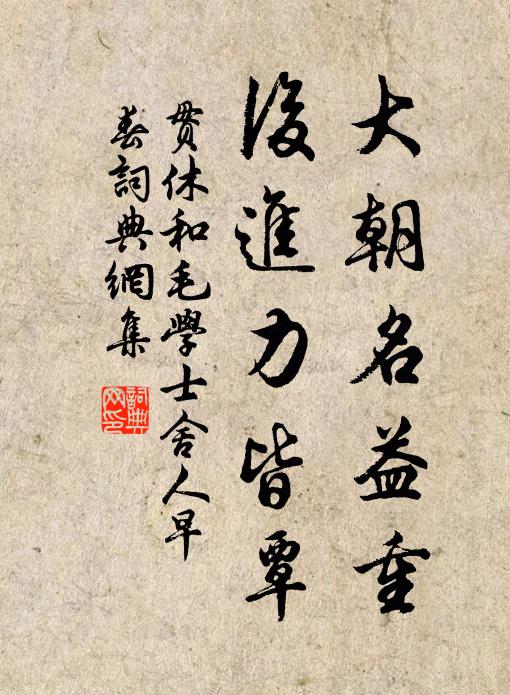 大朝名益重
後進力皆覃
貫休和毛學士舍人早
春詞典網集
詞典
网印